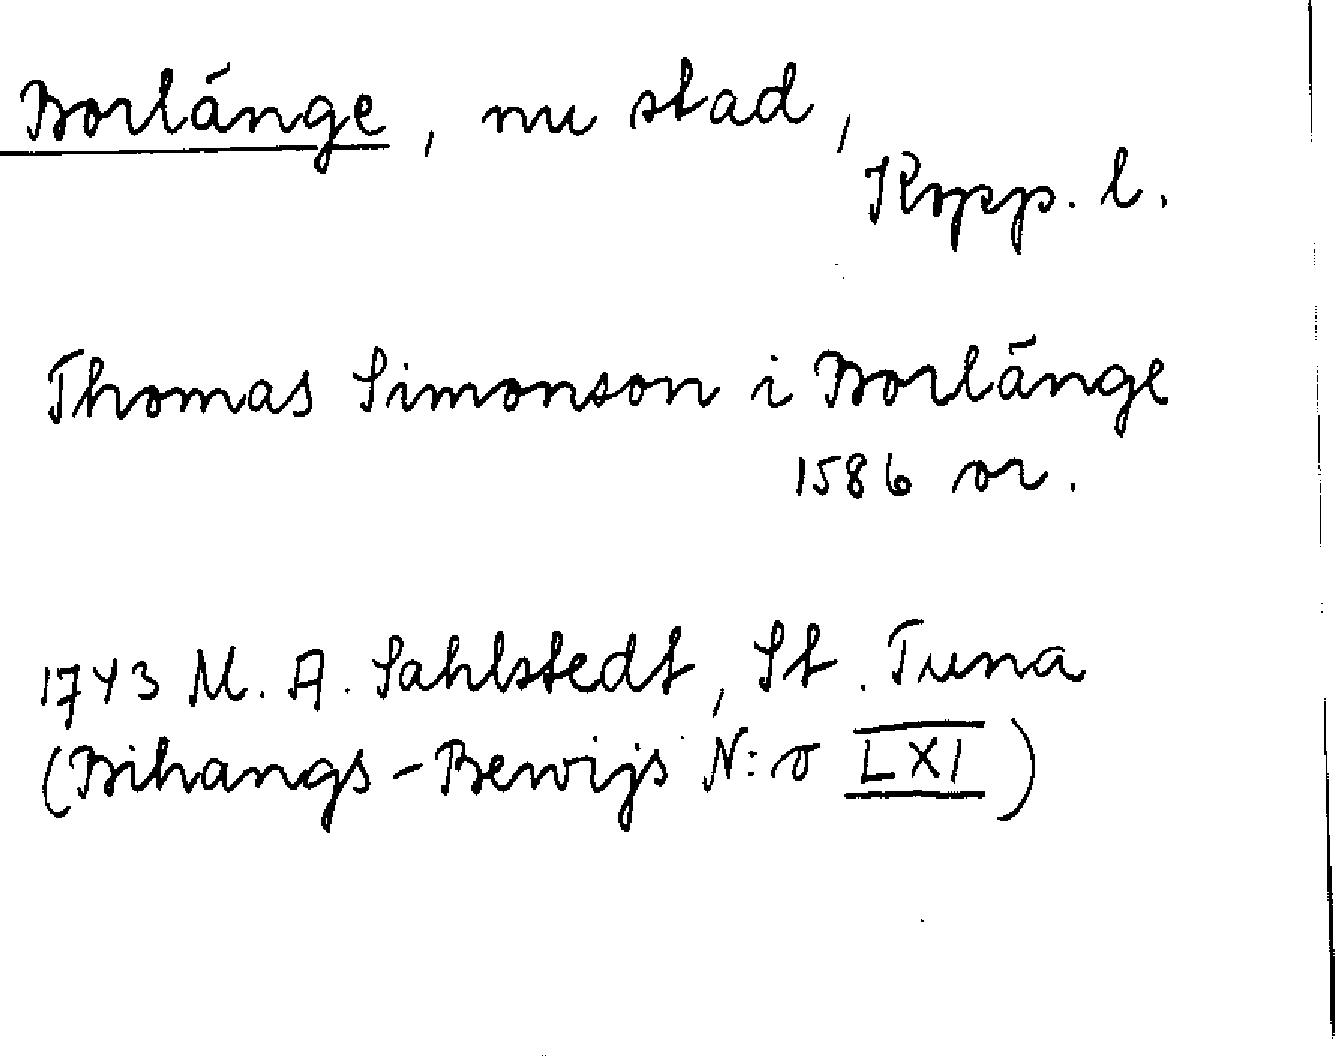 Borlänge, nu stad,
Kopp. l.
Thomas Simonson i Borlänge
1586 or.
1743 M. A. Sahlstedt, St. Tuna
(Bihangs-Bewijs N:o LXI)